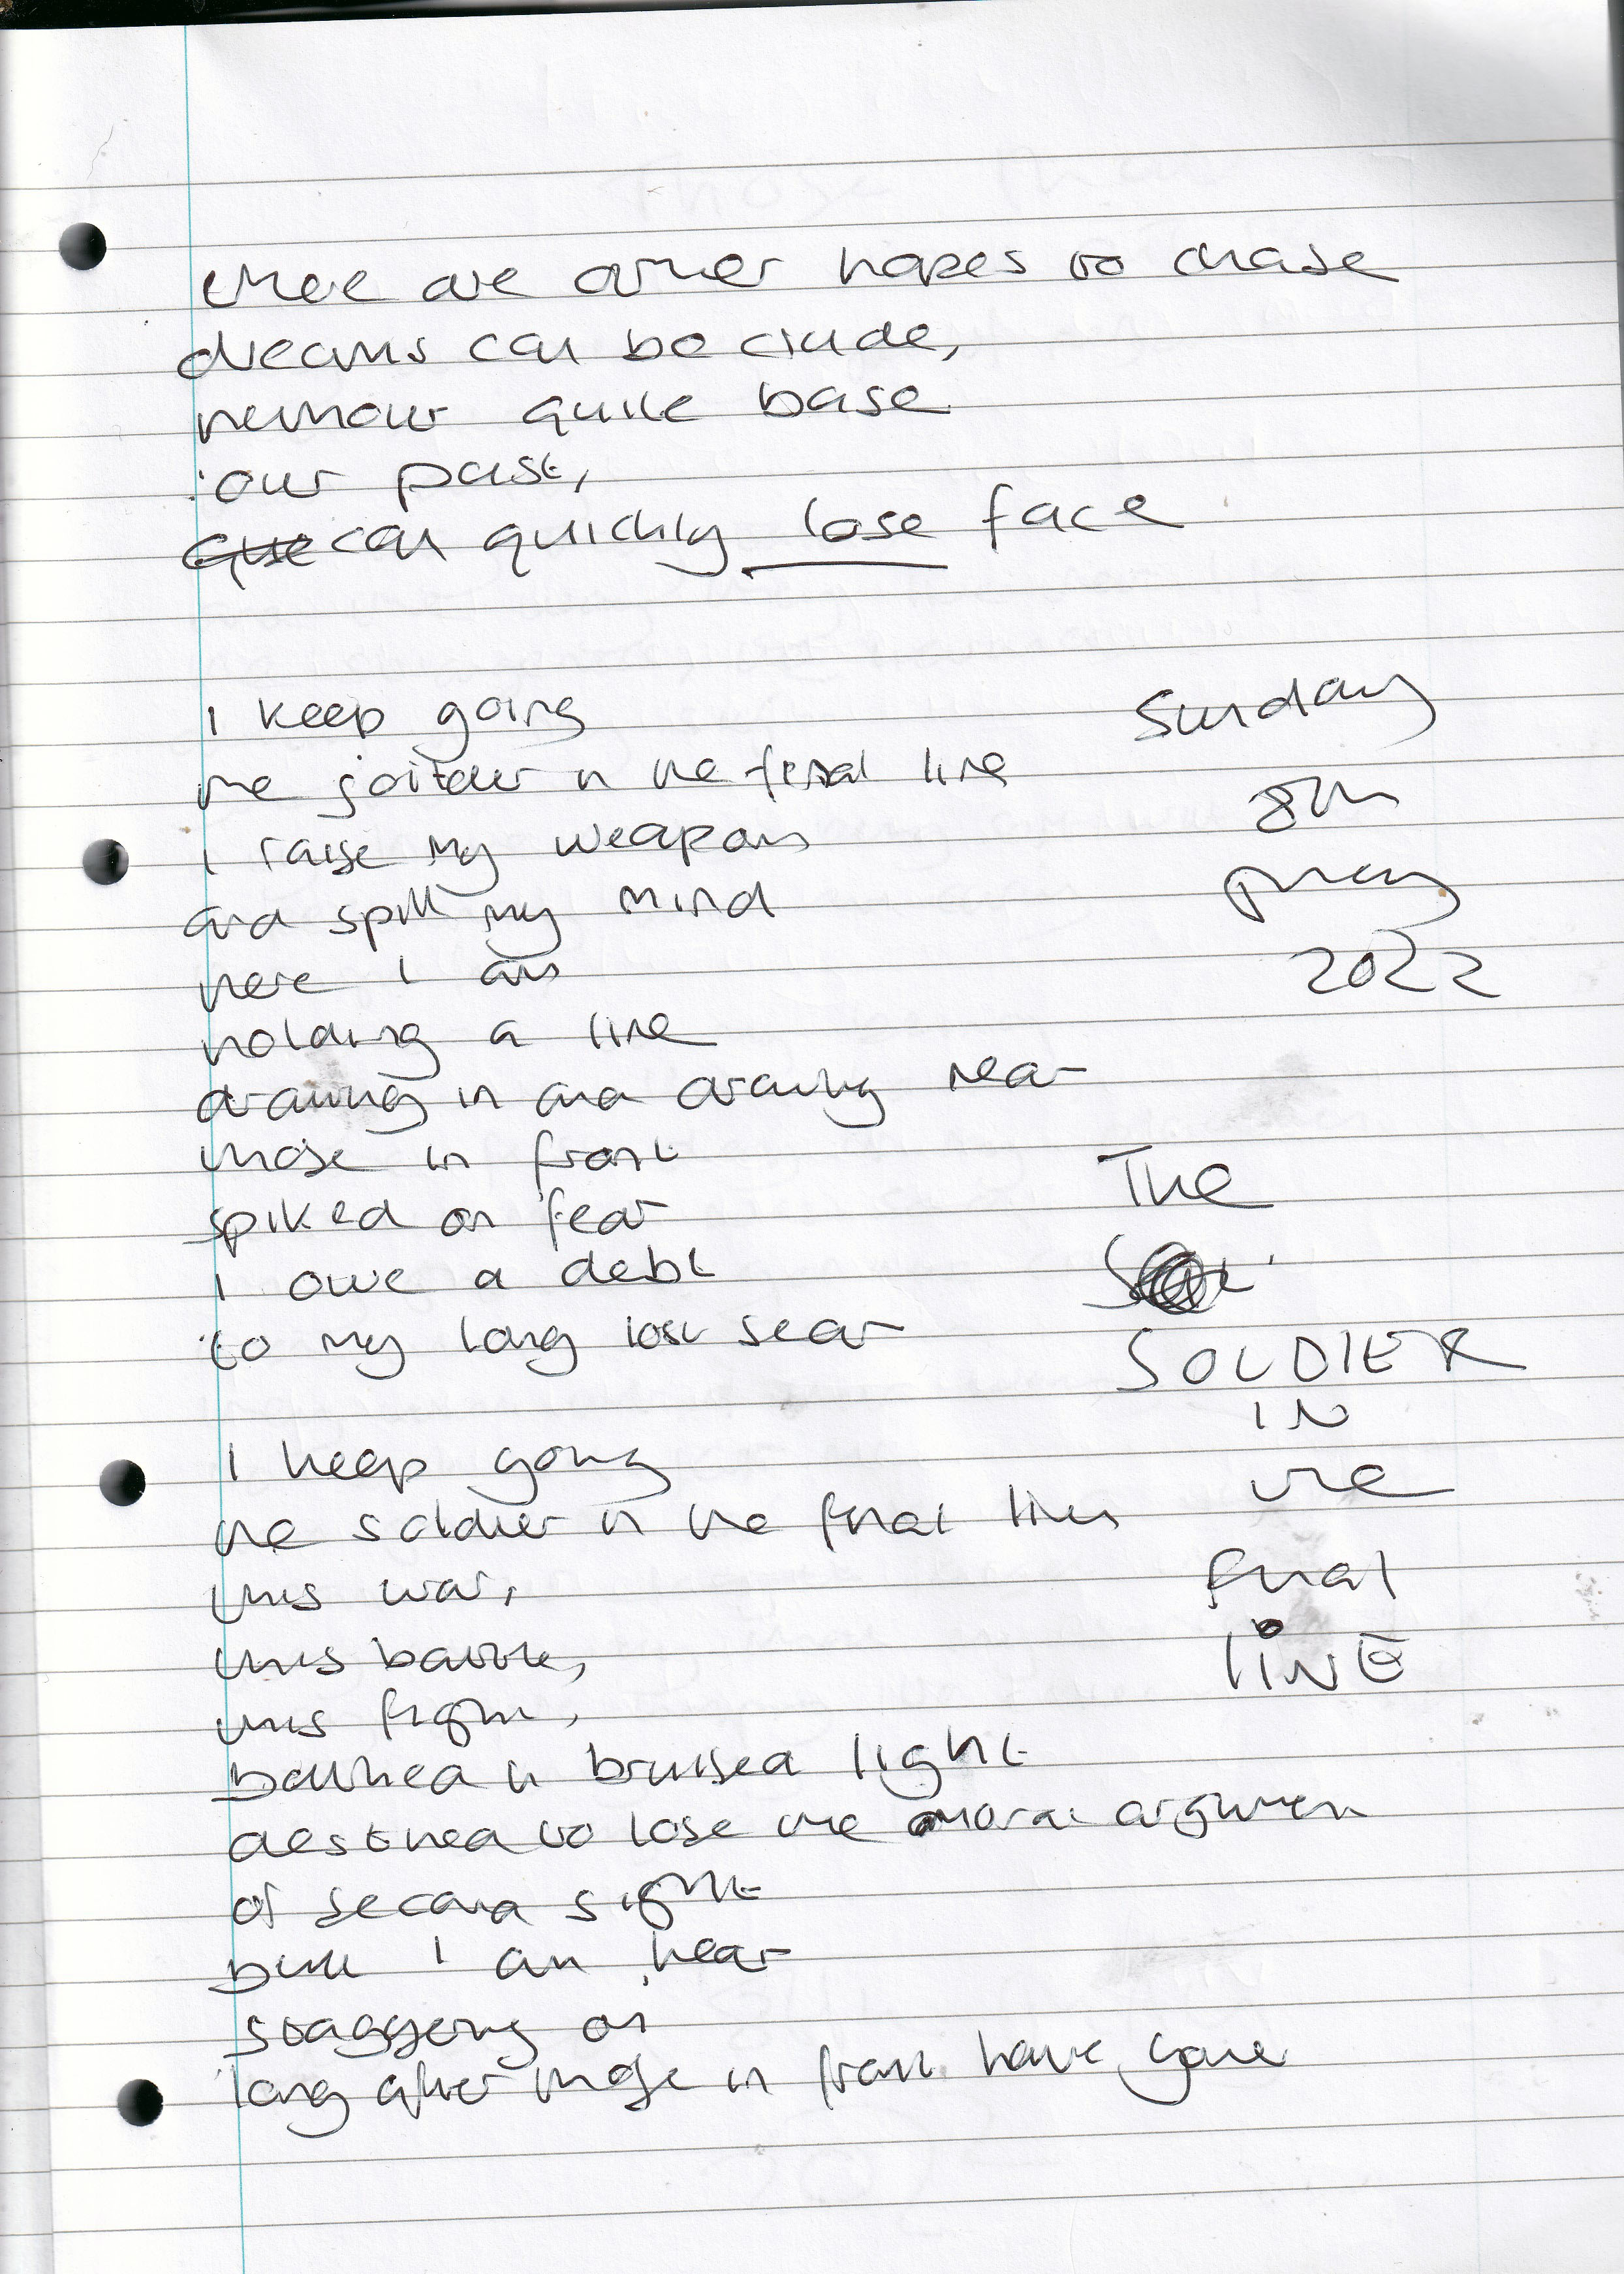 there are other hopes to chase
dreams can be crude,
humour quite base
our past,
can quickly lose face
I keep going
the soldier in the final line
I raise my weapon
and spill my mind
here I am
holding a line
drawing in and drawing near
those in front
spiked on fear
I owe a debt
to my long lost sear
Sunday
8th
May
2022
The
SOLDIER
IN
the
final
LiNE
I keep going
the soldier in the final line
this war,
this battle,
this fight,
bathed in bruised light
destined to lose the moral argument
of second sight
but I am hear
staggering on
long after those in front have gone